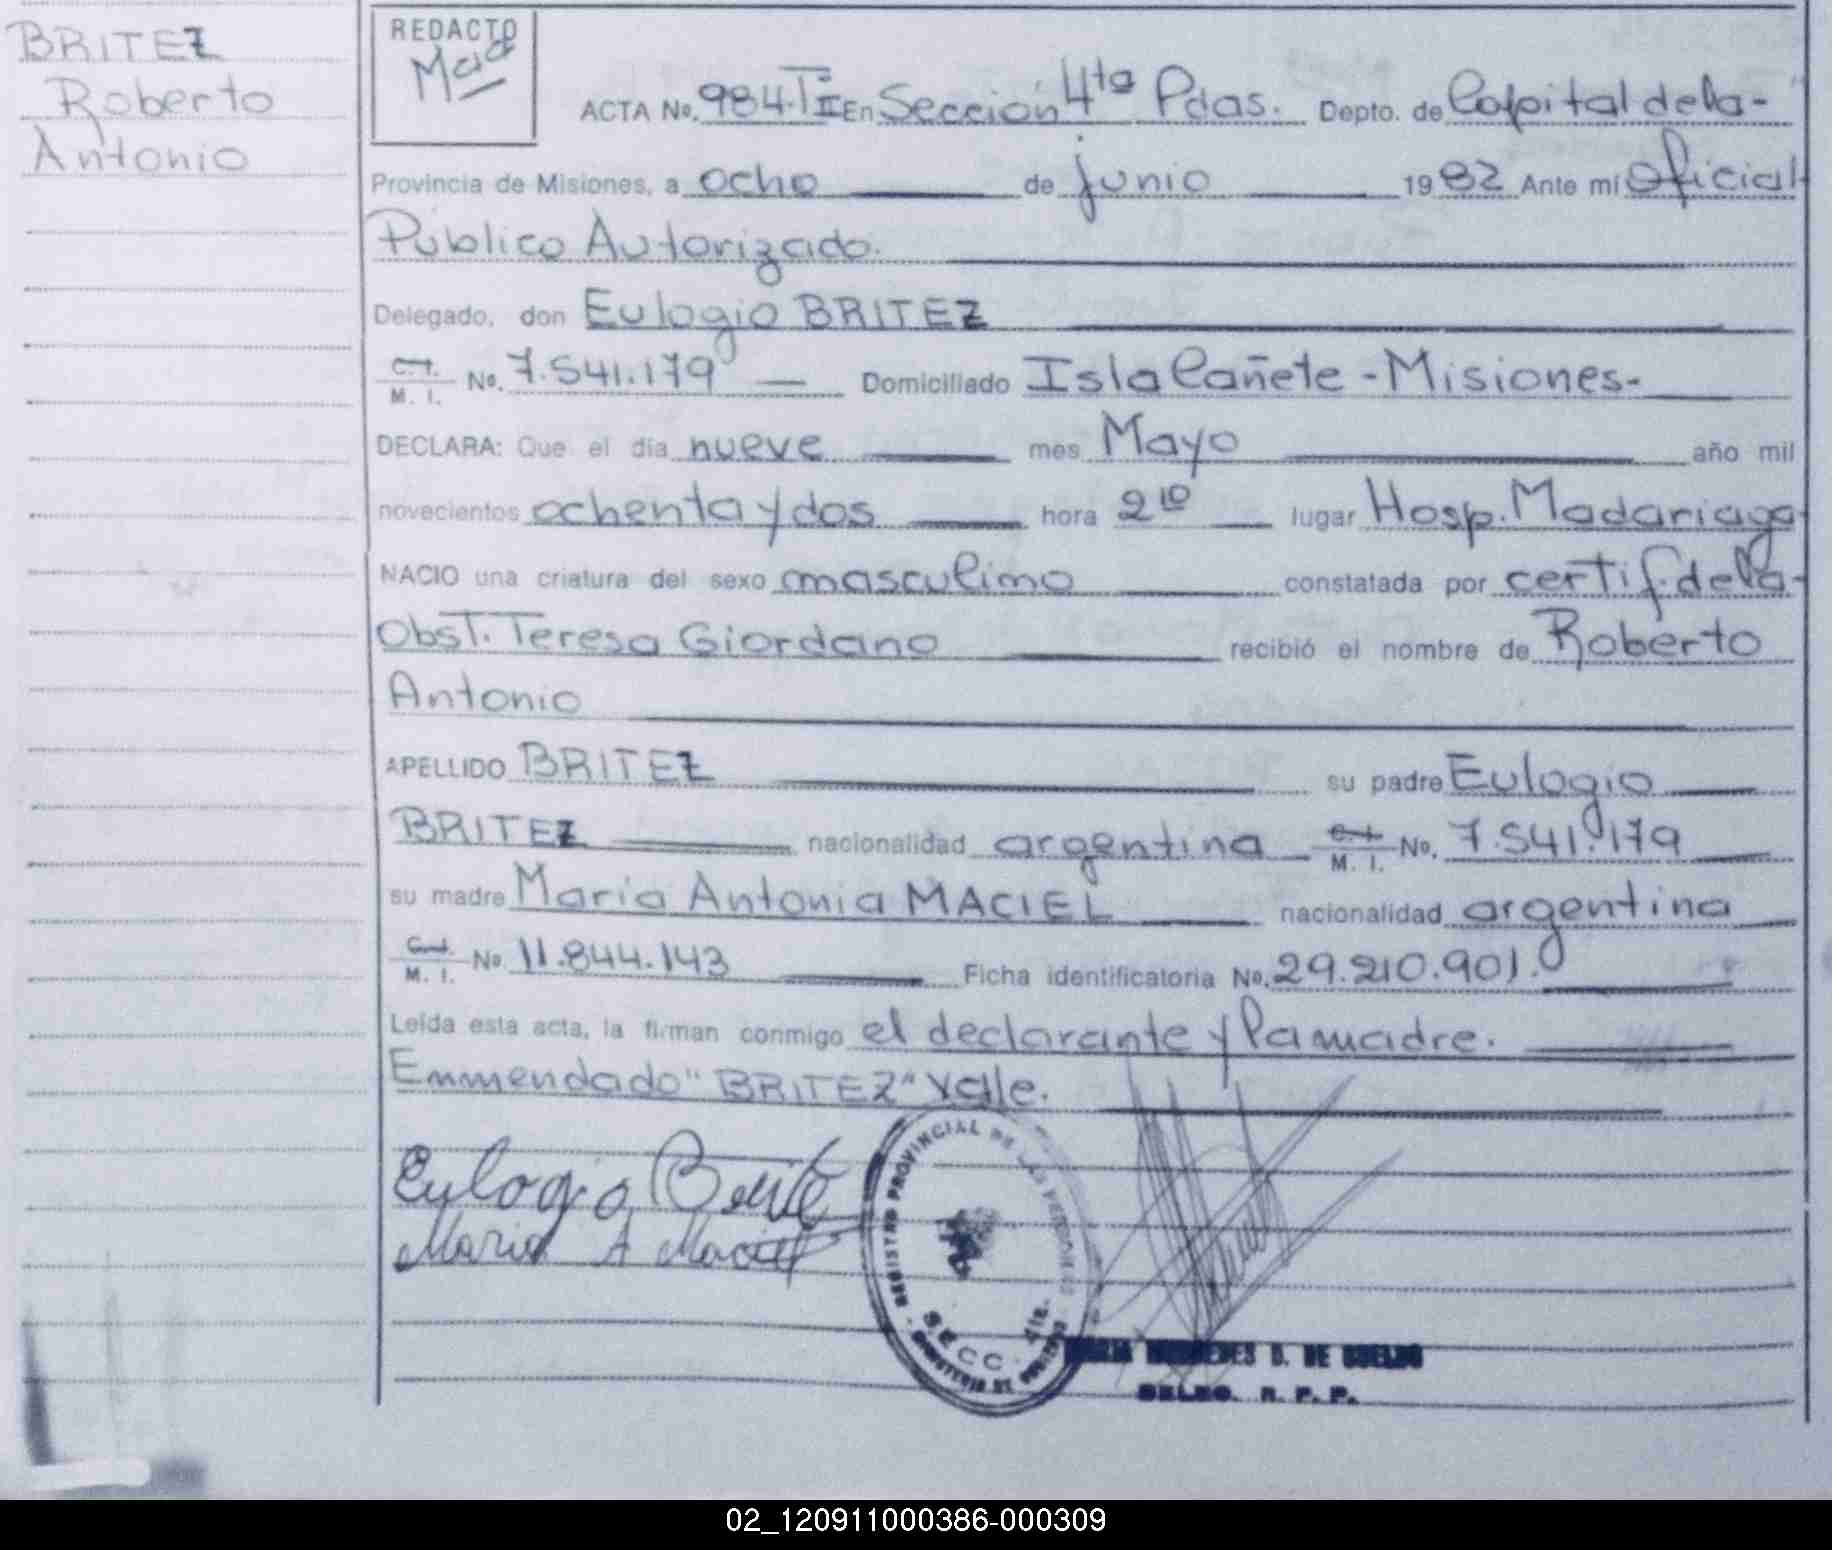 BRITEZ
Roberto
Antonio
REDACTO
ACTA No. 984.TºII En Sección 4ta Pdas. Depto. de Capital de la-
Provincia de Misiones, a ocho de junio 1982 Ante mí Oficial
Público Autorizado.
Delegado, don Eulogio BRITEZ
C.I. M. I. No. 7.541.179 Domiciliado Isla Cañete - Misiones-
DECLARA: Que el día nueve mes Mayo año mil
novecientos ochenta y dos hora 2 10 lugar Hosp. Madariaga
NACIO una criatura del sexo masculino constatada por certif. de la-
Obst. Teresa Giordano recibió el nombre de Roberto
Antonio
APELLIDO BRITEZ su padre Eulogio
BRITEZ nacionalidad argentina C.I. M. I. No. 7.541.179
su madre Maria Antonia MACIEL nacionalidad argentina
C.I. M. I. No. 11.844.143 Ficha identificatoria No. 29.210.901.
Leída esta acta, la firman conmigo el declarante y la madre.
Enmendado "BRITEZ" Vale.
Eulogio Brite
Maria A Maciel
REGISTRO PROVINCIAL DE LAS PERSONAS
SECC. 4ta.
D. DE
DELEG. R. P. P.
02_120911000386-000309